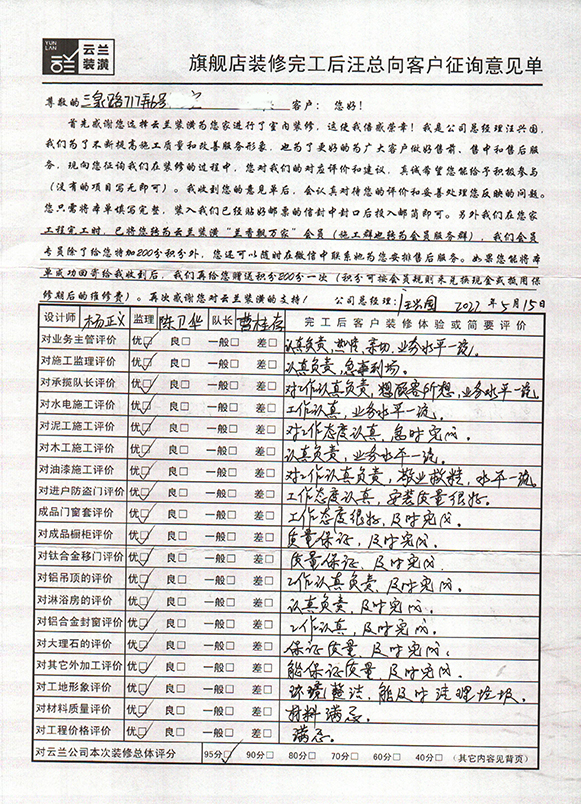 YUN LAN 云兰装潢
旗舰店装修完工后汪总向客户征询意见单
尊敬的三泉路717弄6号 客户：您好！
首先感谢您选择云兰装潢为您家进行了室内装修，这使我倍感荣幸！我是公司总经理汪兴国，
我们为了不断提高施工质量和改善服务形象，也为了更好的为广大客户做好售前、售中和售后服
务，现向您征询我们在装修的过程中，您对我们的对应评价和建议，真诚希望您能给予积极参与
（没有的项目写无即可）。我收到您的意见单后，会认真对待您的评价和妥善处理您反映的问题。
您只需将本单填写完整，装入我们已经贴好邮票的信封中封口后投入邮筒即可。另外我们在您家
工程完工时，已将您转为云兰装潢“兰香飘万家”会员（施工群也转为会员服务群），我们会员
专员除了给您特加200分积分外，您还可以随时在微信中联系她为您安排售后服务。如果您能将本
单成功回寄给我收到后，我们再给您赠送积分200分一次（积分可按会员规则来兑换现金或抵用保
修期后的维修费）。再次感谢您对云兰装潢的支持！ 公司总经理：汪兴国 2022年5月15日
设计师 杨正义 监理 陈卫华 队长 曹桂存 完工后客户装修体验或简要评价
对业务主管评价 优☑ 良□ 一般□ 差□ 认真负责，热情，亲切，业务水平一流。
对施工监理评价 优☑ 良□ 一般□ 差□ 认真负责，急事到场。
对承揽队长评价 优☑ 良□ 一般□ 差□ 对工作认真负责，想顾客所想，业务水平一流。
对水电施工评价 优☑ 良□ 一般□ 差□ 工作认真，业务水平一流。
对泥工施工评价 优☑ 良□ 一般□ 差□ 对工作态度认真，急时完成。
对木工施工评价 优☑ 良□ 一般□ 差□ 认真负责，业务水平一流。
对油漆施工评价 优☑ 良□ 一般□ 差□ 对工作认真负责，敬业，水平一流。
对进户防盗门评价 优☑ 良□ 一般□ 差□ 工作态度认真，安装质量很好。
成品门窗套评价 优☑ 良□ 一般□ 差□ 工作态度很好，及时完成。
对成品橱柜评价 优☑ 良□ 一般□ 差□ 质量保证，及时完成。
对钛合金移门评价 优☑ 良□ 一般□ 差□ 质量保证，及时完成。
对铝吊顶的评价 优☑ 良□ 一般□ 差□ 工作认真负责，及时完成。
对淋浴房的评价 优☑ 良□ 一般□ 差□ 认真负责，及时完成。
对铝合金封窗评价 优☑ 良□ 一般□ 差□ 工作认真，及时完成。
对大理石的评价 优☑ 良□ 一般□ 差□ 保证质量，及时完成。
对其它外加工评价 优☑ 良□ 一般□ 差□ 能保证质量，及时完成。
对工地形象评价 优☑ 良□ 一般□ 差□ 环境整洁，能及时清理垃圾。
对材料质量评价 优☑ 良□ 一般□ 差□ 材料满意。
对工程价格评价 优☑ 良□ 一般□ 差□ 满意。
对云兰公司本次装修总体评分 95分☑ 90分□ 80分□ 70分□ 60分□ 40分□ （其它内容见背页）